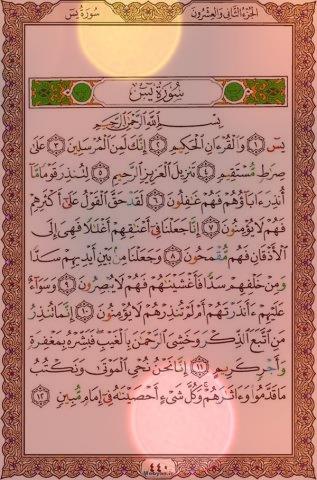 سُورَةُ يسٓ
الجُزْءُ الثَّانِي وَالعِشْرُونَ
سُورَةُ يسٓ
بِسْمِ ٱللَّهِ ٱلرَّحْمَٰنِ ٱلرَّحِيمِ
يسٓ ١ وَٱلْقُرْءَانِ ٱلْحَكِيمِ ٢ إِنَّكَ لَمِنَ ٱلْمُرْسَلِينَ ٣ عَلَىٰ
صِرَٰطٍ مُّسْتَقِيمٍ ٤ تَنزِيلَ ٱلْعَزِيزِ ٱلرَّحِيمِ ٥ لِتُنذِرَ قَوْمًا مَّآ
أُنذِرَ ءَابَآؤُهُمْ فَهُمْ غَٰفِلُونَ ٦ لَقَدْ حَقَّ ٱلْقَوْلُ عَلَىٰٓ أَكْثَرِهِمْ
فَهُمْ لَا يُؤْمِنُونَ ٧ إِنَّا جَعَلْنَا فِىٓ أَعْنَٰقِهِمْ أَغْلَٰلًا فَهِىَ إِلَى
ٱلْأَذْقَانِ فَهُم مُّقْمَحُونَ ٨ وَجَعَلْنَا مِنۢ بَيْنِ أَيْدِيهِمْ سَدًّا
وَمِنْ خَلْفِهِمْ سَدًّا فَأَغْشَيْنَٰهُمْ فَهُمْ لَا يُبْصِرُونَ ٩ وَسَوَآءٌ
عَلَيْهِمْ ءَأَنذَرْتَهُمْ أَمْ لَمْ تُنذِرْهُمْ لَا يُؤْمِنُونَ ١٠ إِنَّمَا تُنذِرُ
مَنِ ٱتَّبَعَ ٱلذِّكْرَ وَخَشِىَ ٱلرَّحْمَٰنَ بِٱلْغَيْبِ فَبَشِّرْهُ بِمَغْفِرَةٍ
وَأَجْرٍ كَرِيمٍ ١١ إِنَّا نَحْنُ نُحْىِ ٱلْمَوْتَىٰ وَنَكْتُبُ
مَا قَدَّمُوا۟ وَءَاثَٰرَهُمْ وَكُلَّ شَىْءٍ أَحْصَيْنَٰهُ فِىٓ إِمَامٍ مُّبِينٍ ١٢
٤٤٠